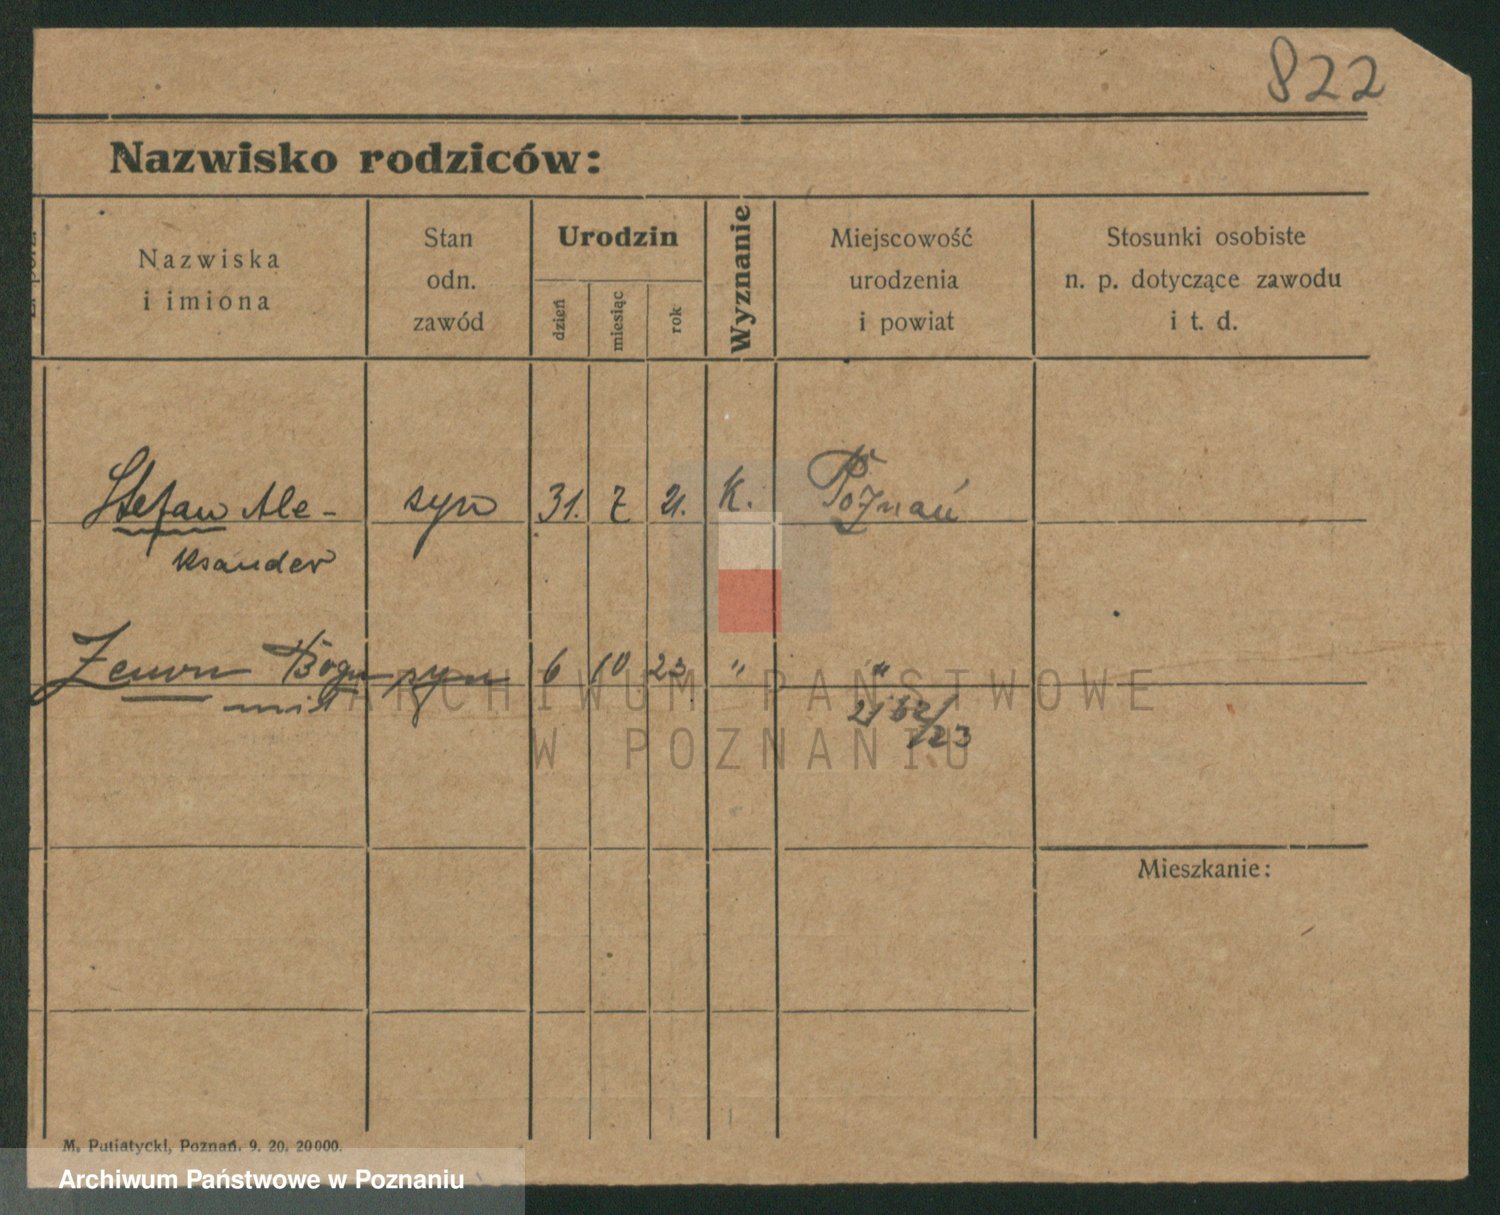 822
Nazwisko rodziców:
Nazwiska
i imiona
Stan
odn.
zawód
Urodzin
dzień
miesiąc
rok
Wyznanie
Miejscowość
urodzenia
i powiat
Stosunki osobiste
n. p. dotyczące zawodu
i t. d.
Stefan Ale- syn 31. 7 21. K. Poznań
ksander
Zenon Bogu syn 6 10 23 " "
mił
ARCHIWUM PAŃSTWOWE
W POZNANIU
Mieszkanie:
M. Putiatycki, Poznań. 9. 20. 20000.
Archiwum Państwowe w Poznaniu